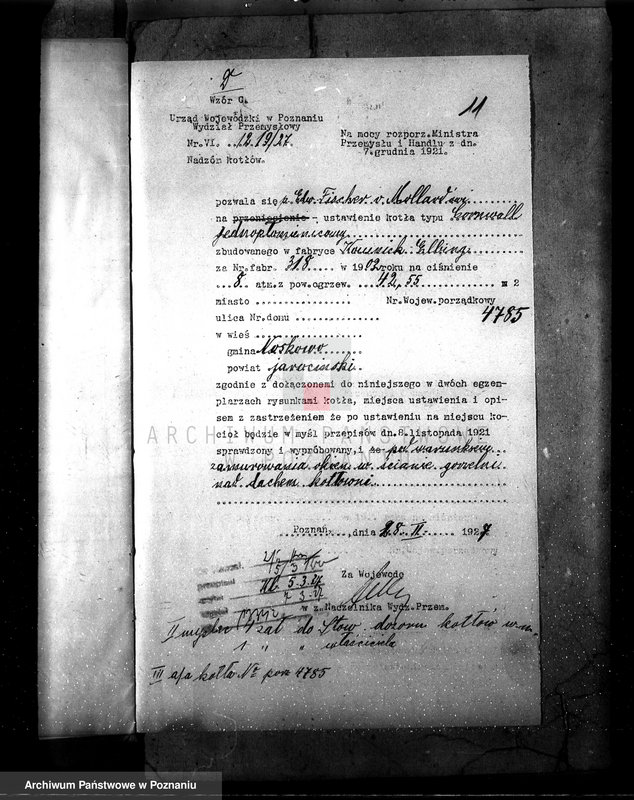 Wzór G.
11
Urząd Wojewódzki w Poznaniu
Wydział Przemysłowy
Nr.VI. 1219/27
Nadzór kotłów.
Na mocy rozporz.Ministra
Przemysłu i Handlu z dn.
7.grudnia 1921.
pozwala się p. Edw. Fischer v. Mollard'owi
na przeniesienie - ustawienie kotła typu Cornwall
jednopłomienicowy
zbudowanego w fabryce Komnick Elbing
za Nr.fabr. 318 w 1902 roku na ciśnienie
8. atm.z pow.ogrzew. 42,55 m 2
miasto
Nr.Wojew.porządkowy
4785
ulica Nr.domu
w wieś
gmina Noskowo
powiat jarociński
zgodnie z dołączonemi do niniejszego w dwóch egzem-
plarzach rysunkami kotła, miejsca ustawienia i opi-
sem z zastrzeżeniem że po ustawieniu na miejscu ko-
cioł będzie w myśl przepisów dn.8.listopada 1921
sprawdzony i wypróbowany, i pod warunkiem
zamurowania okien w ścianie gorzelni
nad dachem kotłowni
Poznań, dnia 28. II. 1927
Za Wojewodę
w z. Naczelnika Wydz.Przem.
5.3.27
II 1 zał. do Stow. dozoru kotłów
1 " " właściciela
III a/a kotła No por. 4785
ARCHIWUM PAŃSTWOWE
W POZNANIU
Archiwum Państwowe w Poznaniu